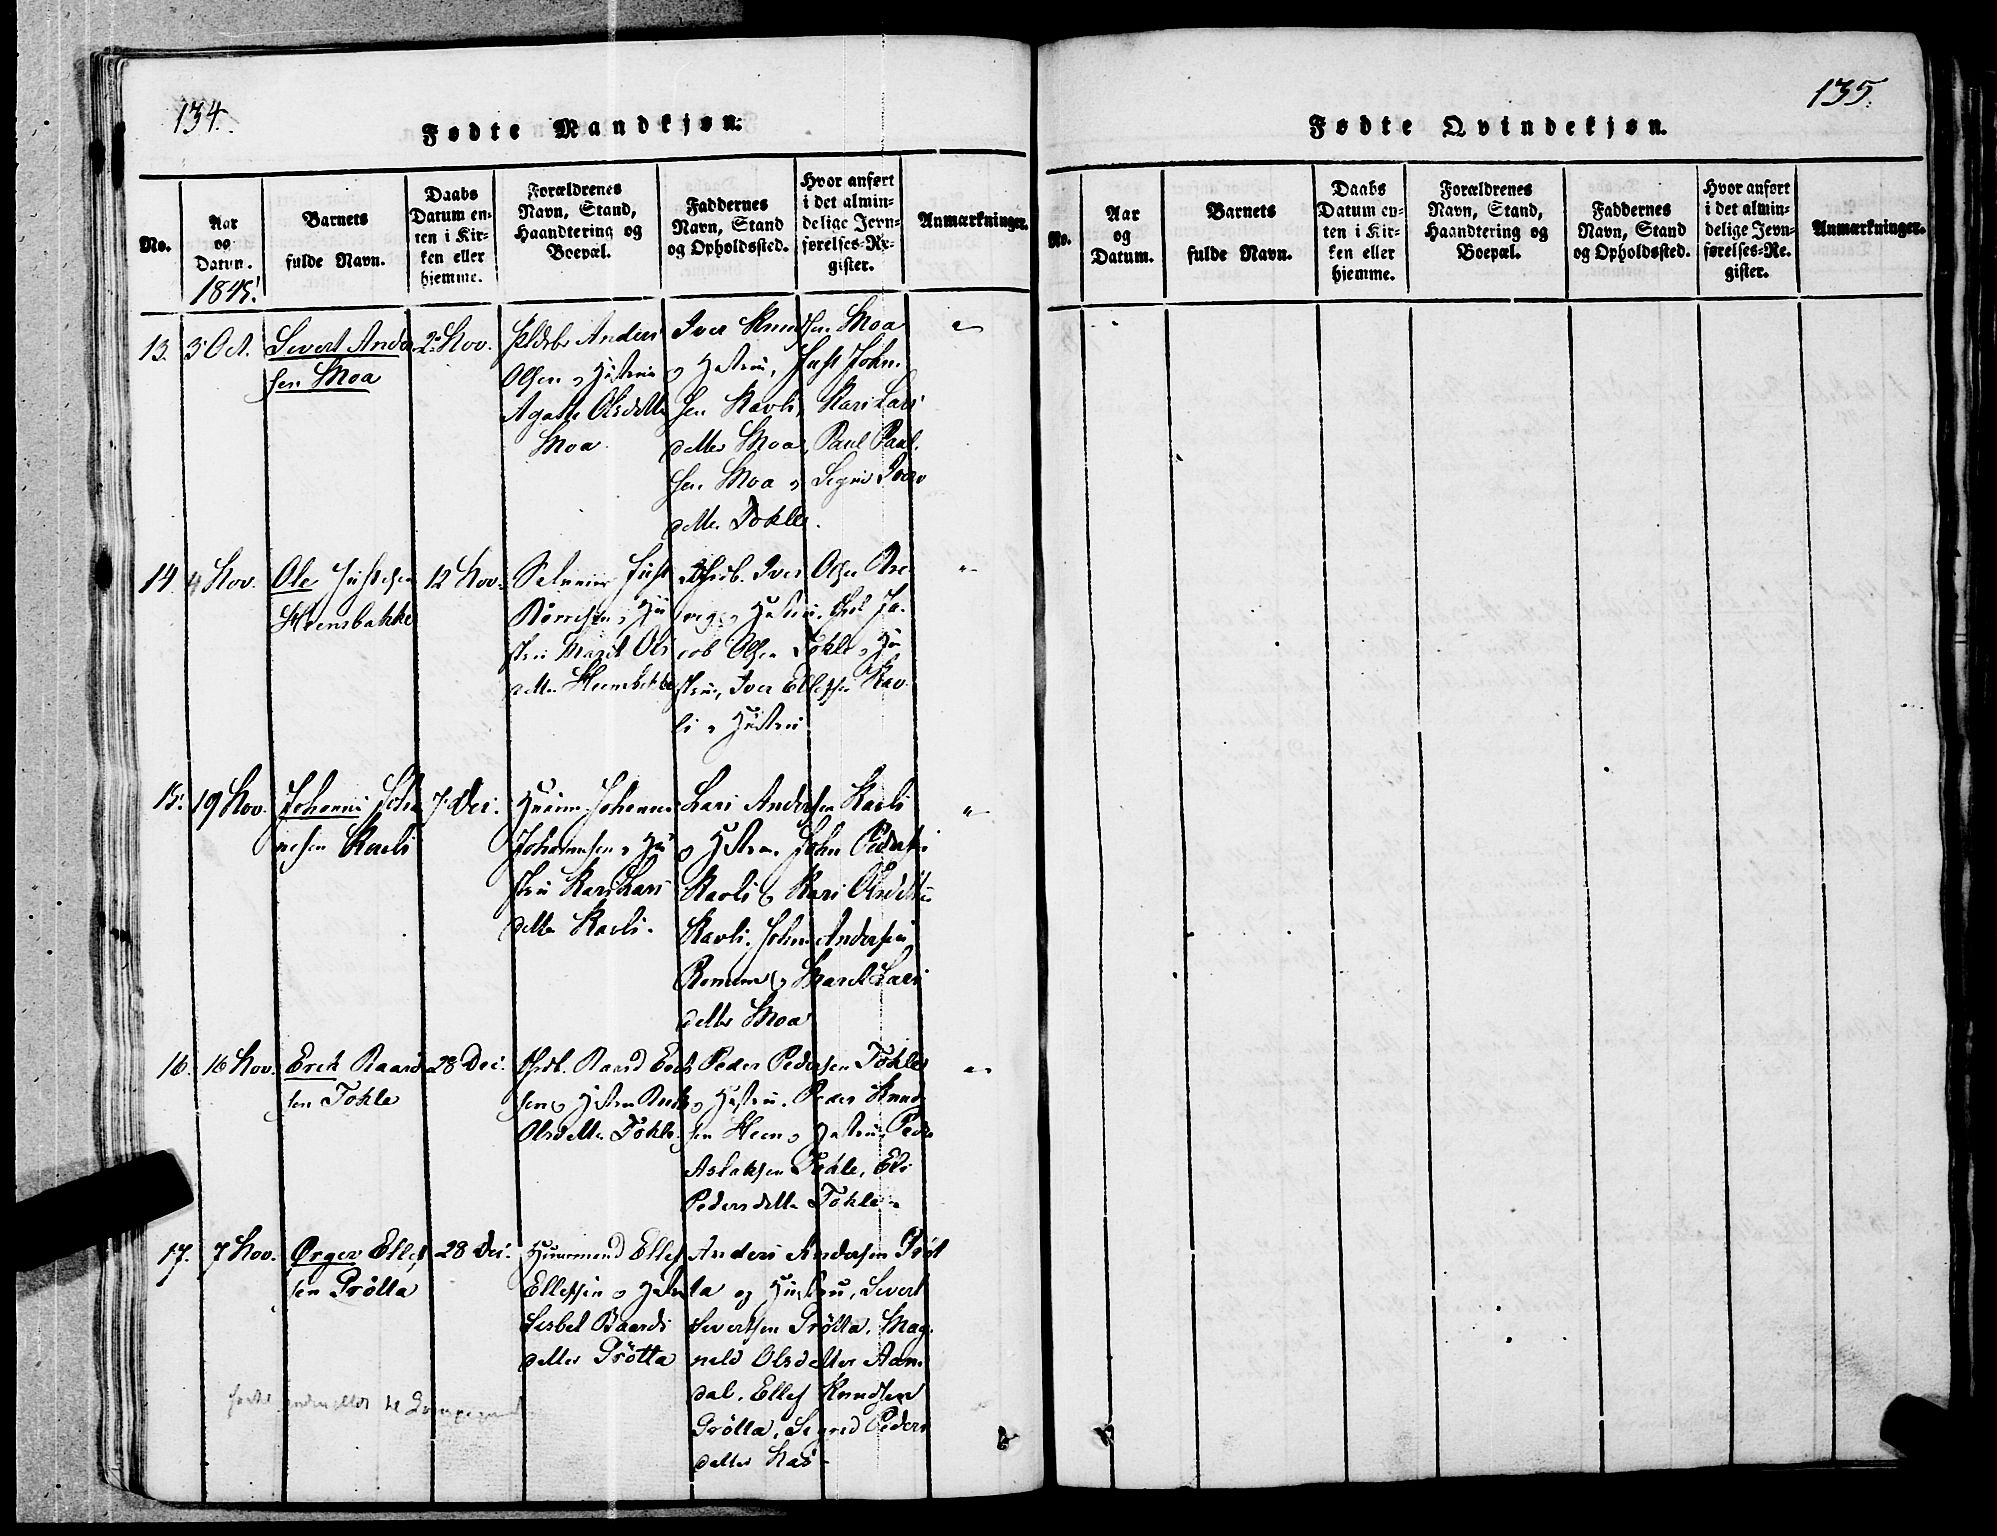 134.
Fødte Mandkjøn.
No.
Aar
og
Datum.
1845.
Barnets
fulde Navn.
Daabs
Datum en-
ten i Kir-
ken eller
hjemme.
Forældrenes
Navn, Stand,
Haandtering og
Boepæl.
Faddernes
Navn, Stand
og Opholdssted.
Hvor anført
i det almin-
delige Jevn-
førelses-Re-
gister.
Anmærkninger.
13. 3 Oct.
Sivert Ander
sen Moa
2 Nov.
Anders
Olsen og Hustru
Olsdatter
Moa.
Iver Knudsen Moa
og Hustru, John
sen Ravli, Kari Lars
datter Moa, Paul Paul
sen Moa og Sigrid Ivers
datter Tokle.
14. 4 Nov.
Ole
Heensbakke
12 Nov.
og Hu
stru Marit Ols
datter Heensbakke
Iver Olsen
og Hustru, Ja
cob Olsen Tokle og Hu
stru, Iver Ellefsen Rav
li og Hustru
15. 19 Nov.
Johannes Johan
nesen Ravli
7 Dec.
Johannes
Johannesen og Hu
stru Kari Lars
datter Ravli.
Lars Andersen Ravli
og Hustru, John Pedersen
Ravli og Kari Olsdatter
Ravli, John Andersen
og Marit Lars
datter Moa
16. 16 Nov.
Erik Baard
sen Tokle
28 Dec.
Baard Erik
sen og Hustru
Olsdatter Tokle.
Peder Pedersen Tokle
og Hustru. Peder Knud
sen Heen og Hustru, Peder
Aslaksen Tokle,
Pedersdatter Tokle.
17. 7 Nov.
Ørger Ellef
sen Prøtta
28 Dec.
Huusmand Ellef
Ellefsen og Hustru
Lisbet Baards
datter Prøtta
Anders Andersen Prøt
ta og Hustru, Sivert
Sivertsen Prøtta, Mag
nild Olsdatter Aan
dal, Ellef Knudsen
Prøtta, Sigrid Peders
datter
135.
Fødte Qvindekjøn.
No.
Aar
og
Datum.
Barnets
fulde Navn.
Daabs
Datum en-
ten i Kir-
ken eller
hjemme.
Forældrenes
Navn, Stand,
Haandtering og
Boepæl.
Faddernes
Navn, Stand
og Opholdssted.
Hvor anført
i det almin-
delige Jevn-
førelses-Re-
gister.
Anmærkninger.